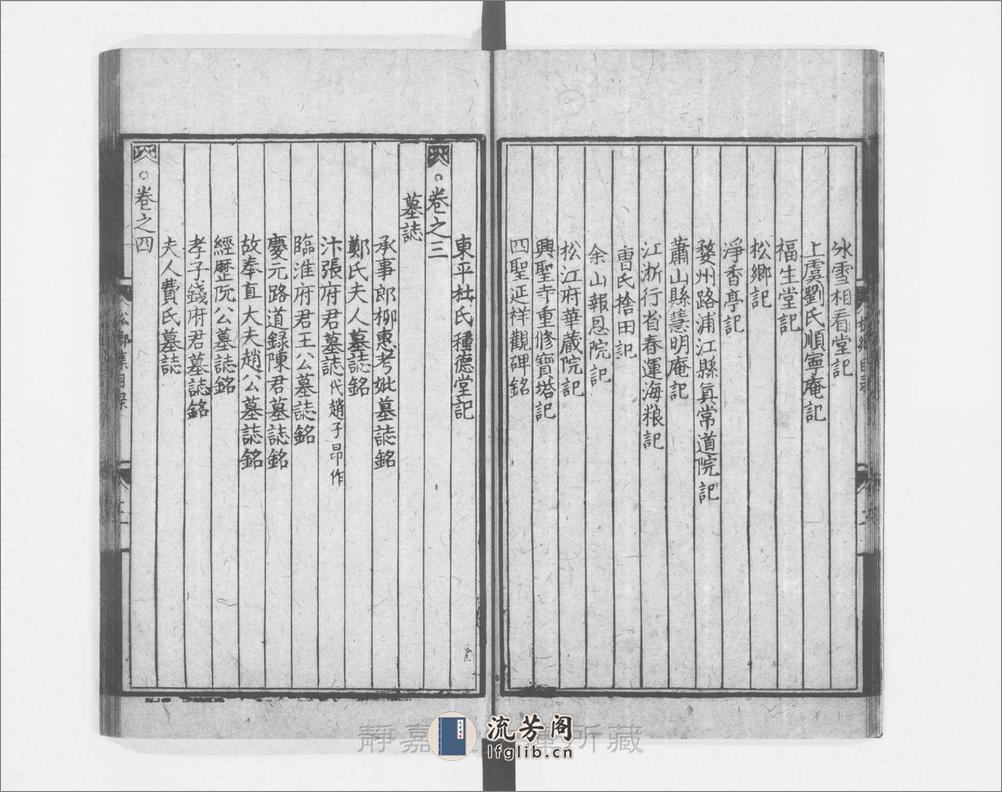 冰雪相看堂記
上虞劉氏順寧庵記
福生堂記
松鄉記
淨香亭記
婺州路浦江縣真常道院記
蕭山縣慧明庵記
江浙行省春運海粮記
曹氏捨田記
余山報恩院記
松江府華藏院記
興聖寺重修寶塔記
四聖延祥觀碑銘
東平杜氏種德堂記
卷之三
墓誌
承事郎柳惠考妣墓誌銘
鄭氏夫人墓誌銘
汴張府君墓誌代趙子昂作
臨淮府君王公墓誌銘
慶元路道錄陳君墓誌銘
故奉直大夫趙公墓誌銘
經歷阮公墓誌銘
孝子錢府君墓誌銘
夫人費氏墓誌
卷之四
松鄉集目錄
靜嘉 所藏
流芳阁
lfglib.cn